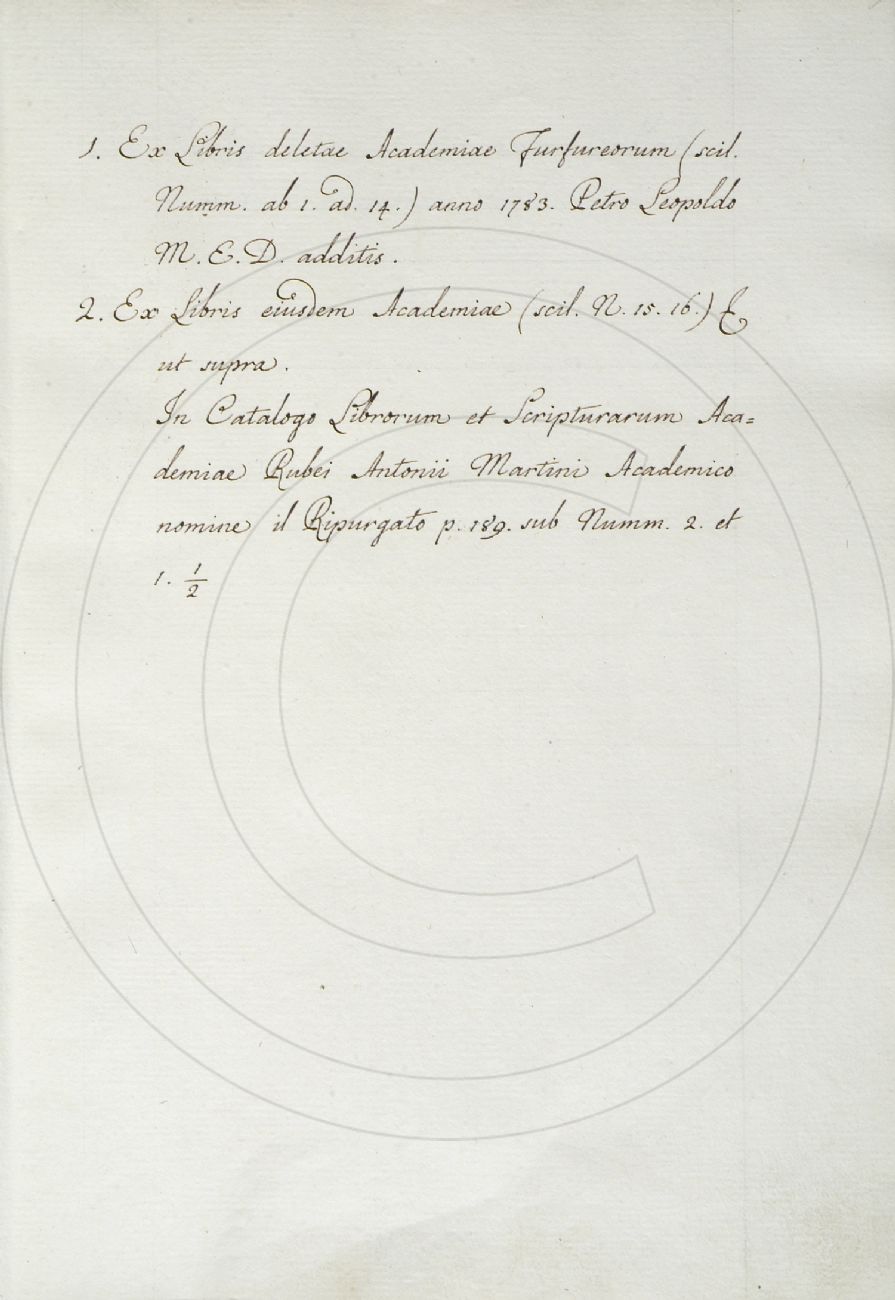 1. Ex Libris deletae Academiae Furfureorum (scil.
Numm. ab 1. ad. 14.) anno 1783. Petro Leopoldo
M. E. D. additis.
2. Ex Libris eiusdem Academiae (scil. N. 15. 16.) &
ut supra.
In Catalogo Librorum et Scripturarum Aca=
demiae Rubei Antonii Martini Academico
nomine il Ripurgato p. 189. sub Numm. 2. et
1. 1/2